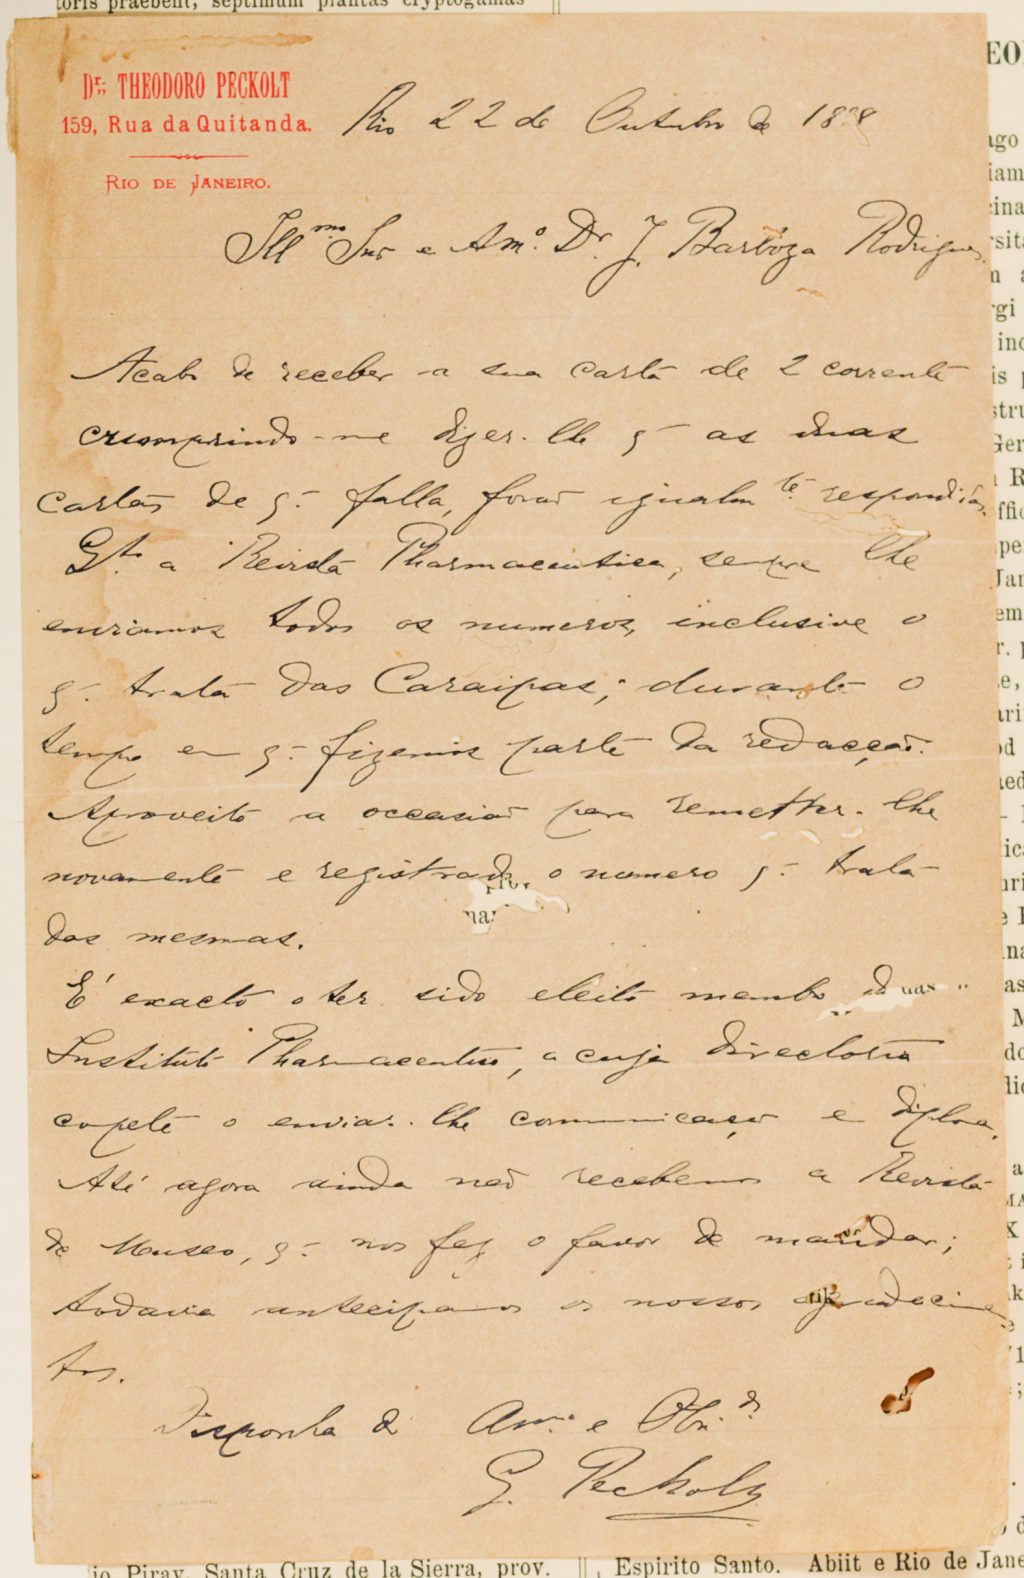 toris praebent, septimum plantas cryptogamas
Dr. THEODORO PECKOLT
159, Rua da Quitanda.
RIO DE JANEIRO.
Rio 22 de Outubro de 1888
Illmo Snr e Amo. Dr. J. Barboza Rodrigues
Acabo de receber a sua carta de 2 corrente
cumprindo-me dizer-lhe q- as duas
cartas de q- falla, forão igualmte respondidas.
Qto a Revista Pharmaceutica, sempre lhe
enviamos todos os numeros, inclusive o
q- trata das Caraipas; durante o
tempo em q- fizemos parte da redacção.
Aproveito a occasião para remetter-lhe
novamente e registrado o numero q- trata
das mesmas.
É exacto o ter sido eleito membro do
Instituto Pharmaceutico, a cuja directoria
compete o enviar-lhe communicação e diploma.
Até agora ainda não recebemos a Revista
do Museo, q- nos fez o favor de mandar;
todavia antecipamos os nossos agradecimen
tos.
Disponha do Amo. e Obrdo.
G. Peckolt
io Piray, Santa Cruz de la Sierra, prov.
Espirito Santo. Abiit e Rio de Jane